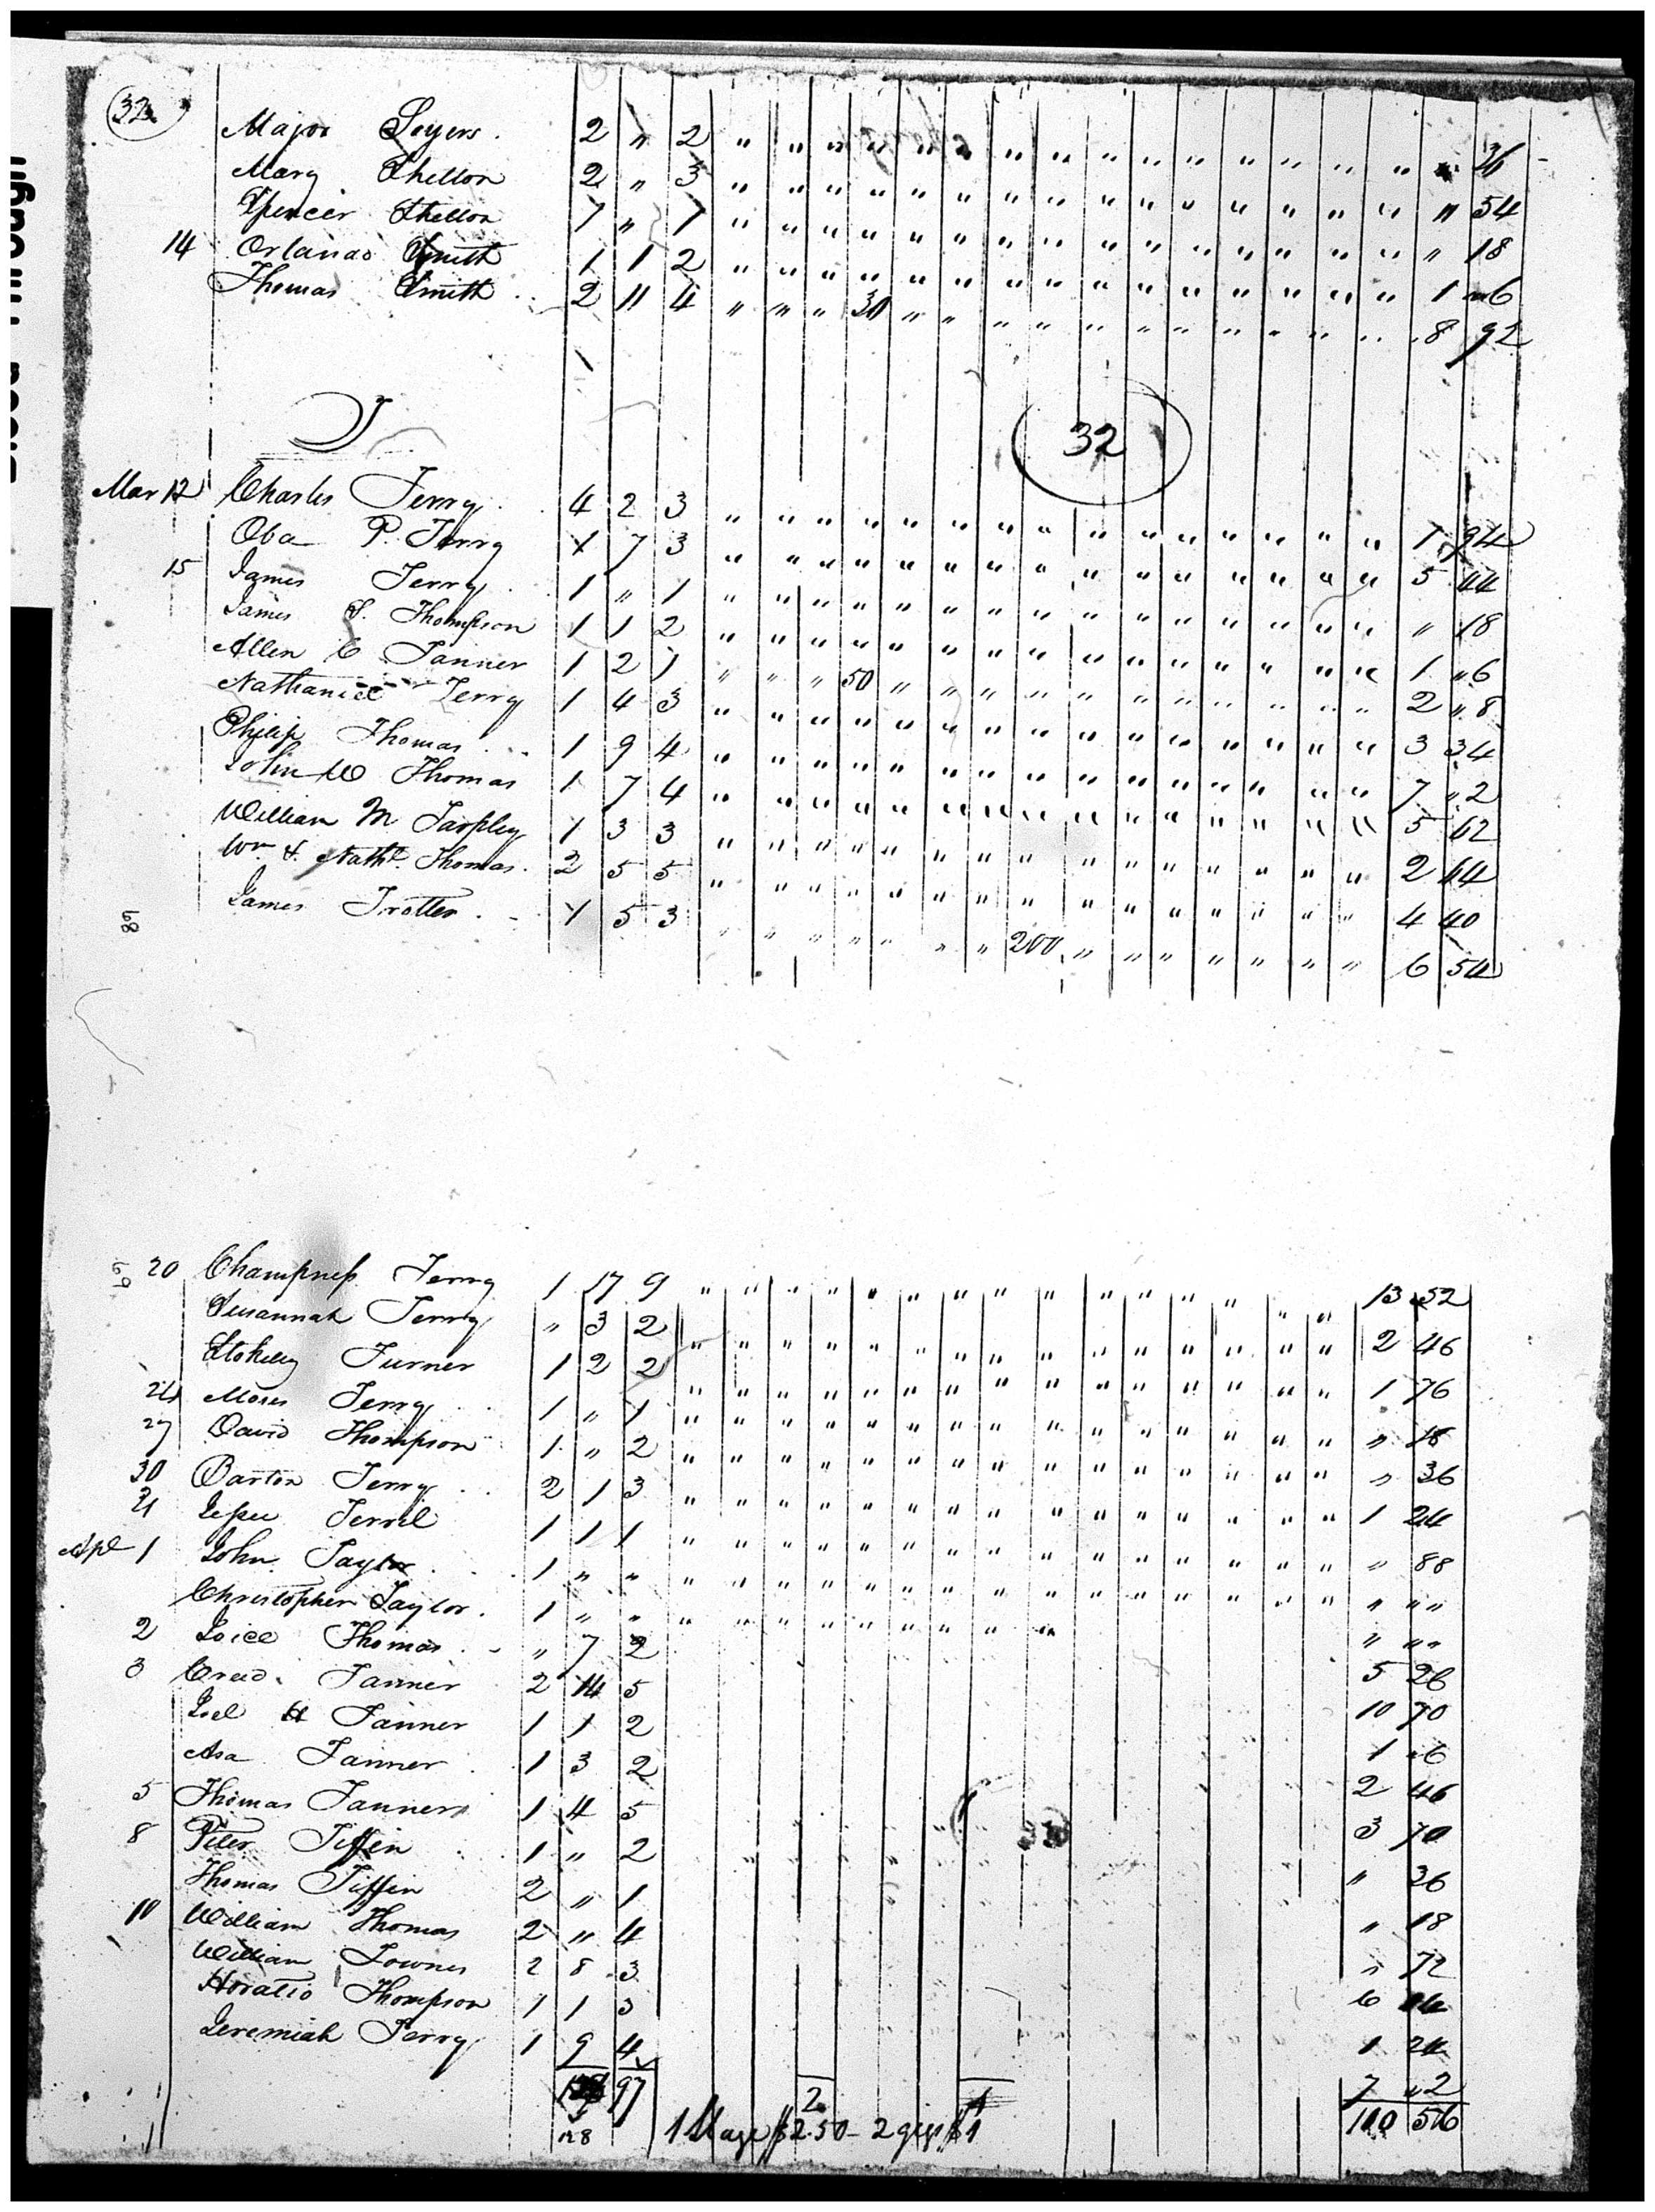 32
Major Soyers . 2 " 2 " " " " " " " " " " " " " " " " " 36
Mary Shelton 2 " 3 " " " " " " " " " " " " " " " " " 54
Spencer Shelton 1 " 1 " " " " " " " " " " " " " " " " " 18
14 Orlando Smith 1 1 2 " " " " " " " " " " " " " " " " 1 "6
Thomas Smith 2 11 4 " " " 30 " " " " " " " " " " " " 8 92
T
32
Mar 12 Charles Terry . 4 2 3 " " " " " " " " " " " " " " " " 1 94
Oba P. Terry 1 7 3 " " " " " " " " " " " " " " " " 5 44
15 James Terry . 1 " 1 " " " " " " " " " " " " " " " " " 18
James S. Thompson 1 1 2 " " " " " " " " " " " " " " " " 1 "6
Allen C Tanner 1 2 1 " " " 50 " " " " " " " " " " " " 2 "8
Nathaniel Terry 1 4 3 " " " " " " " " " " " " " " " " 3 34
Philip Thomas . . 1 9 4 " " " " " " " " " " " " " " " " 7 "2
John W Thomas 1 7 4 " " " " " " " " " " " " " " " " 5 62
William M Tarpley 1 3 3 " " " " " " " " " " " " " " " " 2 64
Wm & Nathl. Thomas . 2 5 5 " " " " " " " " " " " " " " " 4 40
James Trotter . - 1 5 3 " " " " " " " 200 " " " " " " " 6 54
68
69
20 Champness Terry 1 17 9 " " " " " " " " " " " " " " " 13 52
Susannah Terry " 3 2 " " " " " " " " " " " " " " " 2 46
Stokeley Turner 1 2 2 " " " " " " " " " " " " " " " 1 76
24 Moses Terry . . 1 " 1 " " " " " " " " " " " " " " " " 18
27 David Thompson 1 " 2 " " " " " " " " " " " " " " " " 36
30 Barton Terry . . 2 1 3 " " " " " " " " " " " " " " " 1 24
31 Jesse Terril 1 1 1 " " " " " " " " " " " " " " " " 88
Apl 1 John Taylor . . 1 " " " " " " " " " " " " " " " " " " " "
Christopher Taylor . 1 " " " " " " " " " " " " " " "
2 Joice Thomas . - " 7 2 5 26
3 Creed . Tanner 2 14 5 10 70
Joel H Tanner 1 1 2 1 "6
Asa Tanner . 1 3 2 2 46
5 Thomas Tanner 1 4 5 3 70
8 Peter Tiffin . 1 " 2 " 36
Thomas Tiffin 2 " 1 " 18
10 William Thomas 2 " 4 " 72
William Townes 2 8 3 6
Horatio Thompson 1 1 3 1 24
Jeremiah Terry 1 9 4 7 "2
97 2 1 110 56
128 1 Stage $2.50 - 2 gigs $1